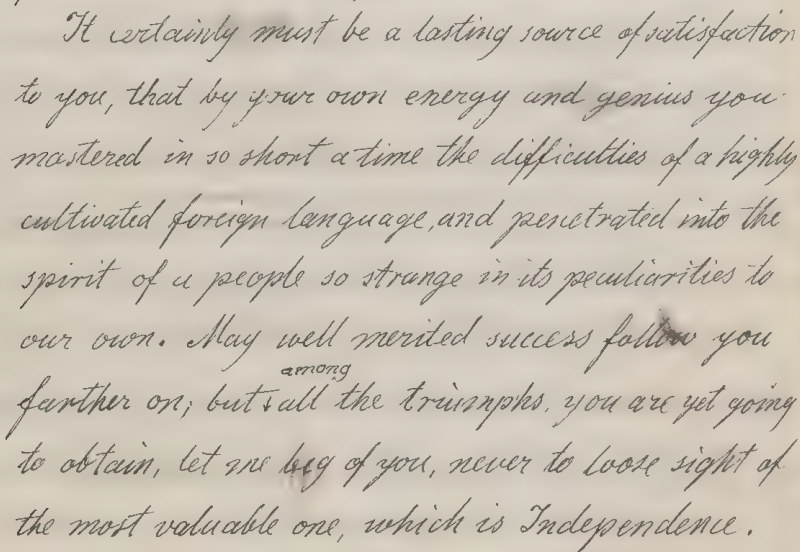 It certainly must be a lasting source of satisfaction
to you, that by your own energy and genius you
mastered in so short a time the difficulties of a highly
cultivated foreign language, and penetrated into the
spirit of a people so strange in its peculiarities to
our own. May well merited success follow you
among
farther on; but all the triumphs, you are yet going
to obtain, let me beg of you, never to loose sight of
the most valuable one, which is Independence.